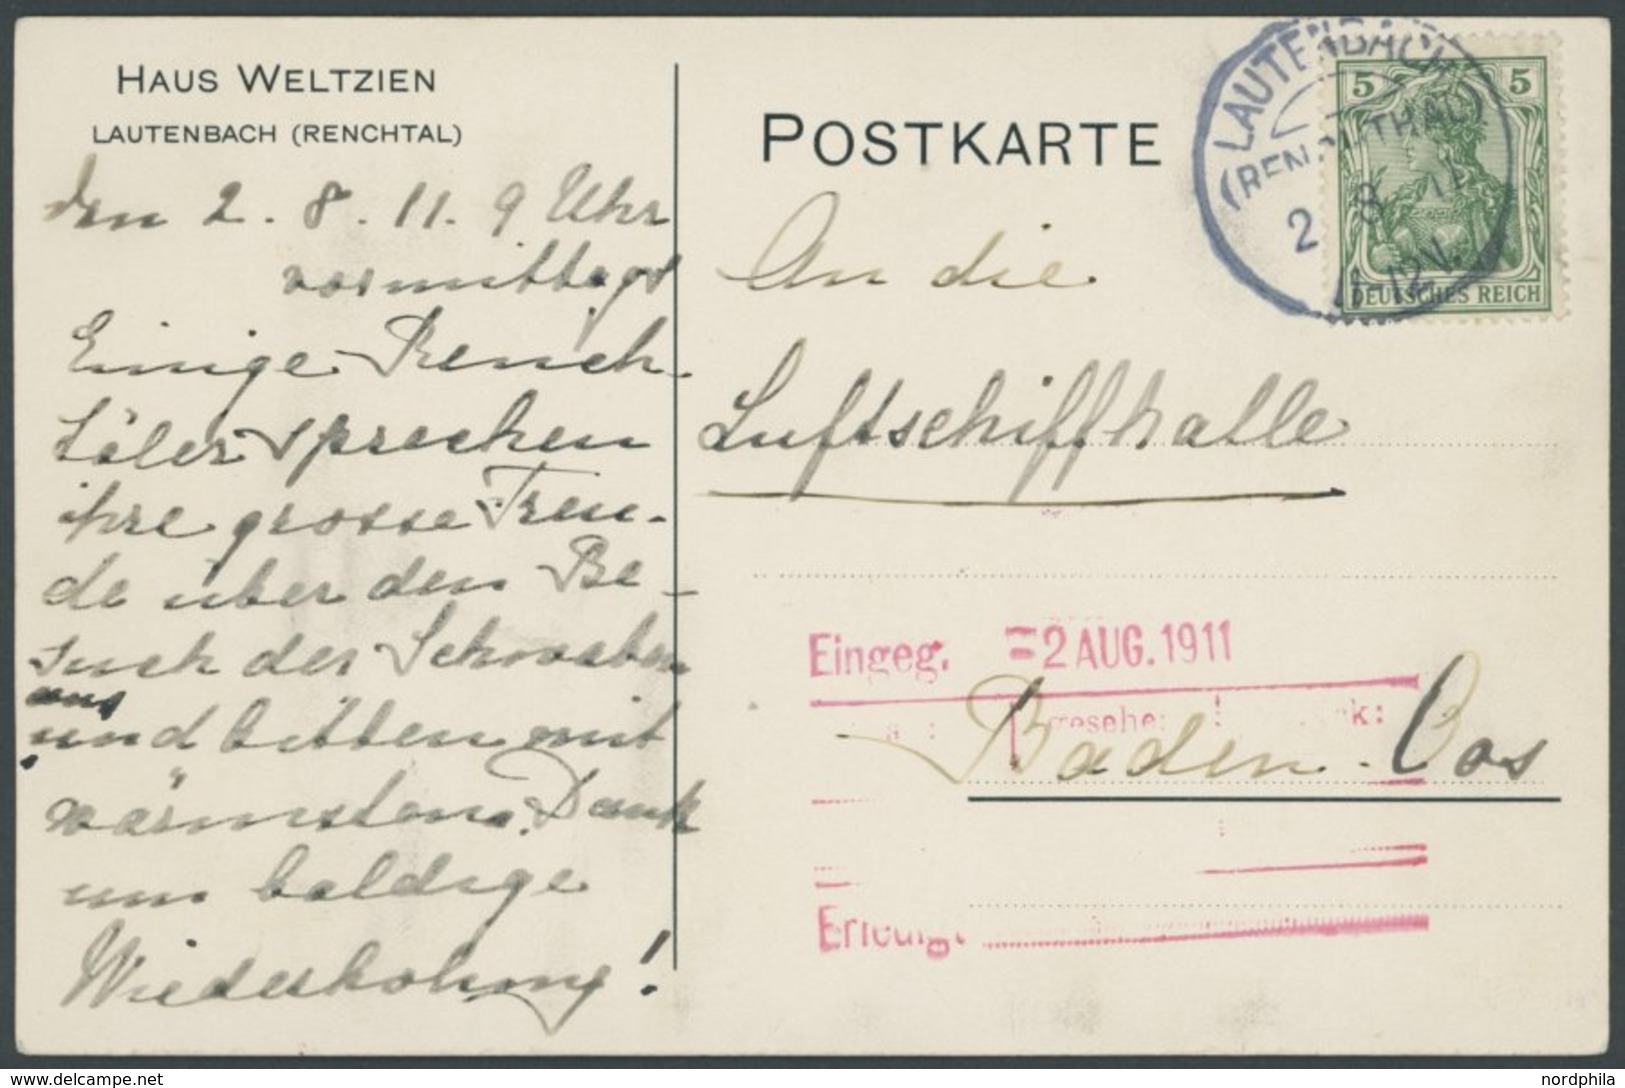 HAUS WELTZIEN
LAUTENBACH (RENCHTAL)
den 2. 8. 11. 9 Uhr
vormittags
Einige Rench
täler sprechen
ihre grosse Freu-
de über den Be-
such der Schwaben
aus
und bitten mit
wärmstem Dank
um baldige
Wiederholung!
POSTKARTE
LAUTENBACH
(RENCHTHAL)
2 8 11
11-12V.
5 5
DEUTSCHES REICH
An die
Luftschiffhalle
Eingeg. =2 AUG. 1911
Baden-Oos
Erledigt
nordphila